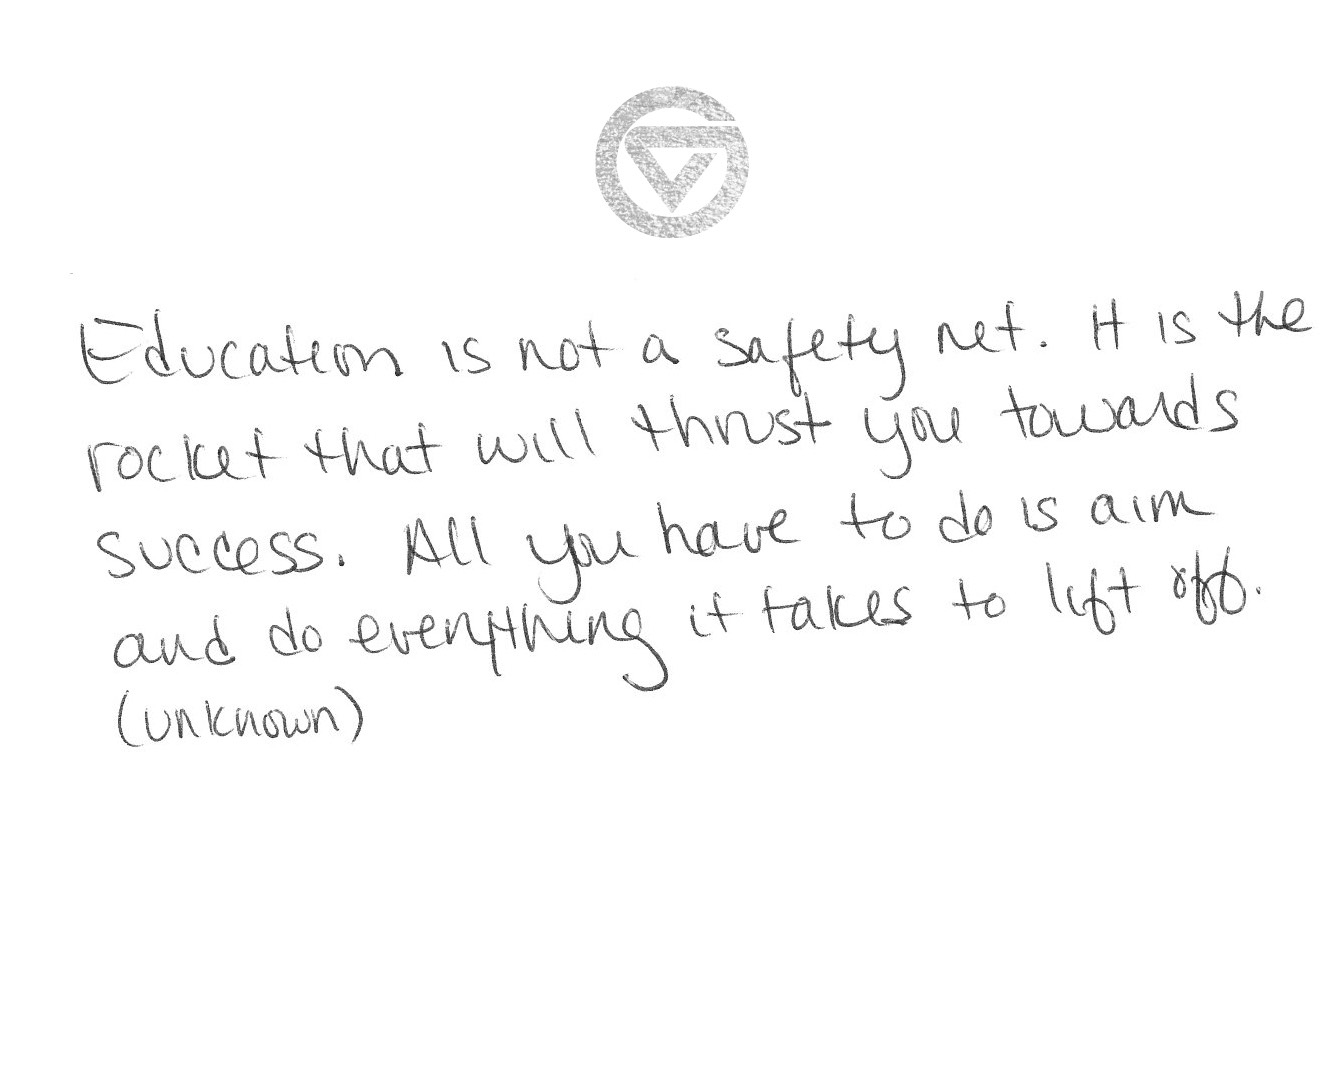 Education is not a safety net. It is the
rocket that will thrust you towards
success. All you have to do is aim
and do everything it takes to lift off.
(unknown)